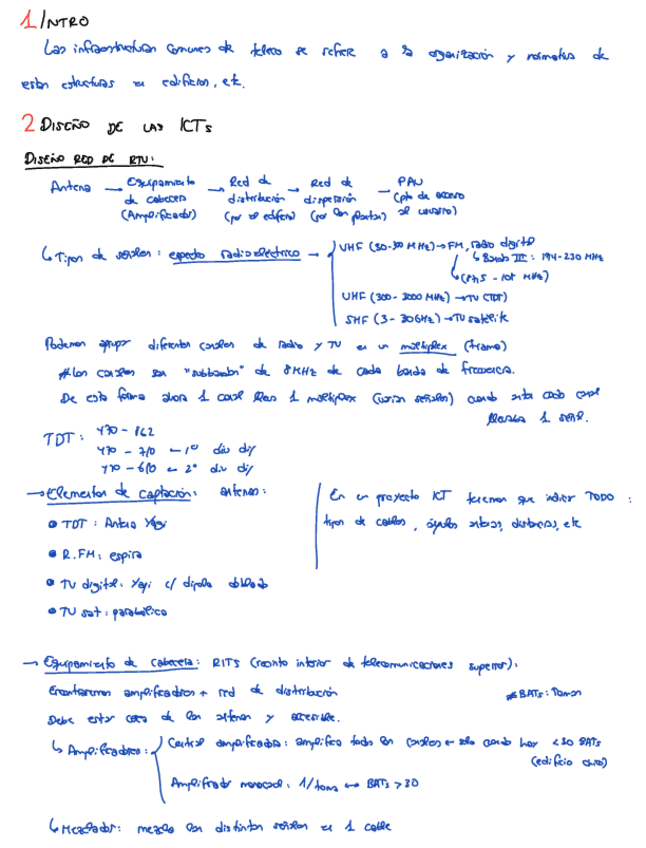 1 INTRO
Las infraestructuras comunes de teleco se refiere a la organización y normativa de
estas estructuras en edificios, etc.
2 DISEÑO DE LAS ICTs
DISEÑO RED DE RTV:
Antena → Equipamiento de cabecera (Amplificador) → Red de distribución (por el edificio) → Red de dispersión (por las plantas) → PAU (pto de acceso al usuario)
↳ Tipos de señales: espectro radioeléctrico →
VHF (30-300 MHz) → FM, radio digital
↳ Banda III: 194-230 MHz
↳ (87,5 - 108 MHz)
UHF (300-3000 MHz) → TV (TDT)
SHF (3-30GHz) → TV satélite
Podemos agrupar diferentes canales de radio y TV en un múltiplex (trama)
#Los canales son "subbandas" de 8MHz de cada banda de frecuencia.
De esta forma ahora 1 canal lleva 1 múltiplex (varias señales) cuando antes cada canal
llevaba 1 señal.
TDT: 470 - 862
470 - 710 ← 1º div dig
470 - 610 ← 2º div dig
→ Elementos de captación: antenas:
• TDT: Antena Yagi
• R.FM: espira
• TV digital: Yagi c/ dipolo doblado
• TV sat: parabólica
En un proyecto ICT tenemos que indicar TODO:
tipos de cables, ángulos antenas, distancias, etc
→ Equipamiento de cabecera: RITS (recinto interior de telecomunicaciones superior):
Encontraremos amplificadores + red de distribución
#BATs: Tomas
Debe estar cerca de las antenas y accesible.
↳ Amplificadores:
Central amplificadora: amplifica todos los canales ← sólo cuando hay <30 BATs
(edificio chico)
Amplificador monocanal: 1/toma ↔ BATs >30
↳ Mezclador: mezcla las distintas señales en 1 cable